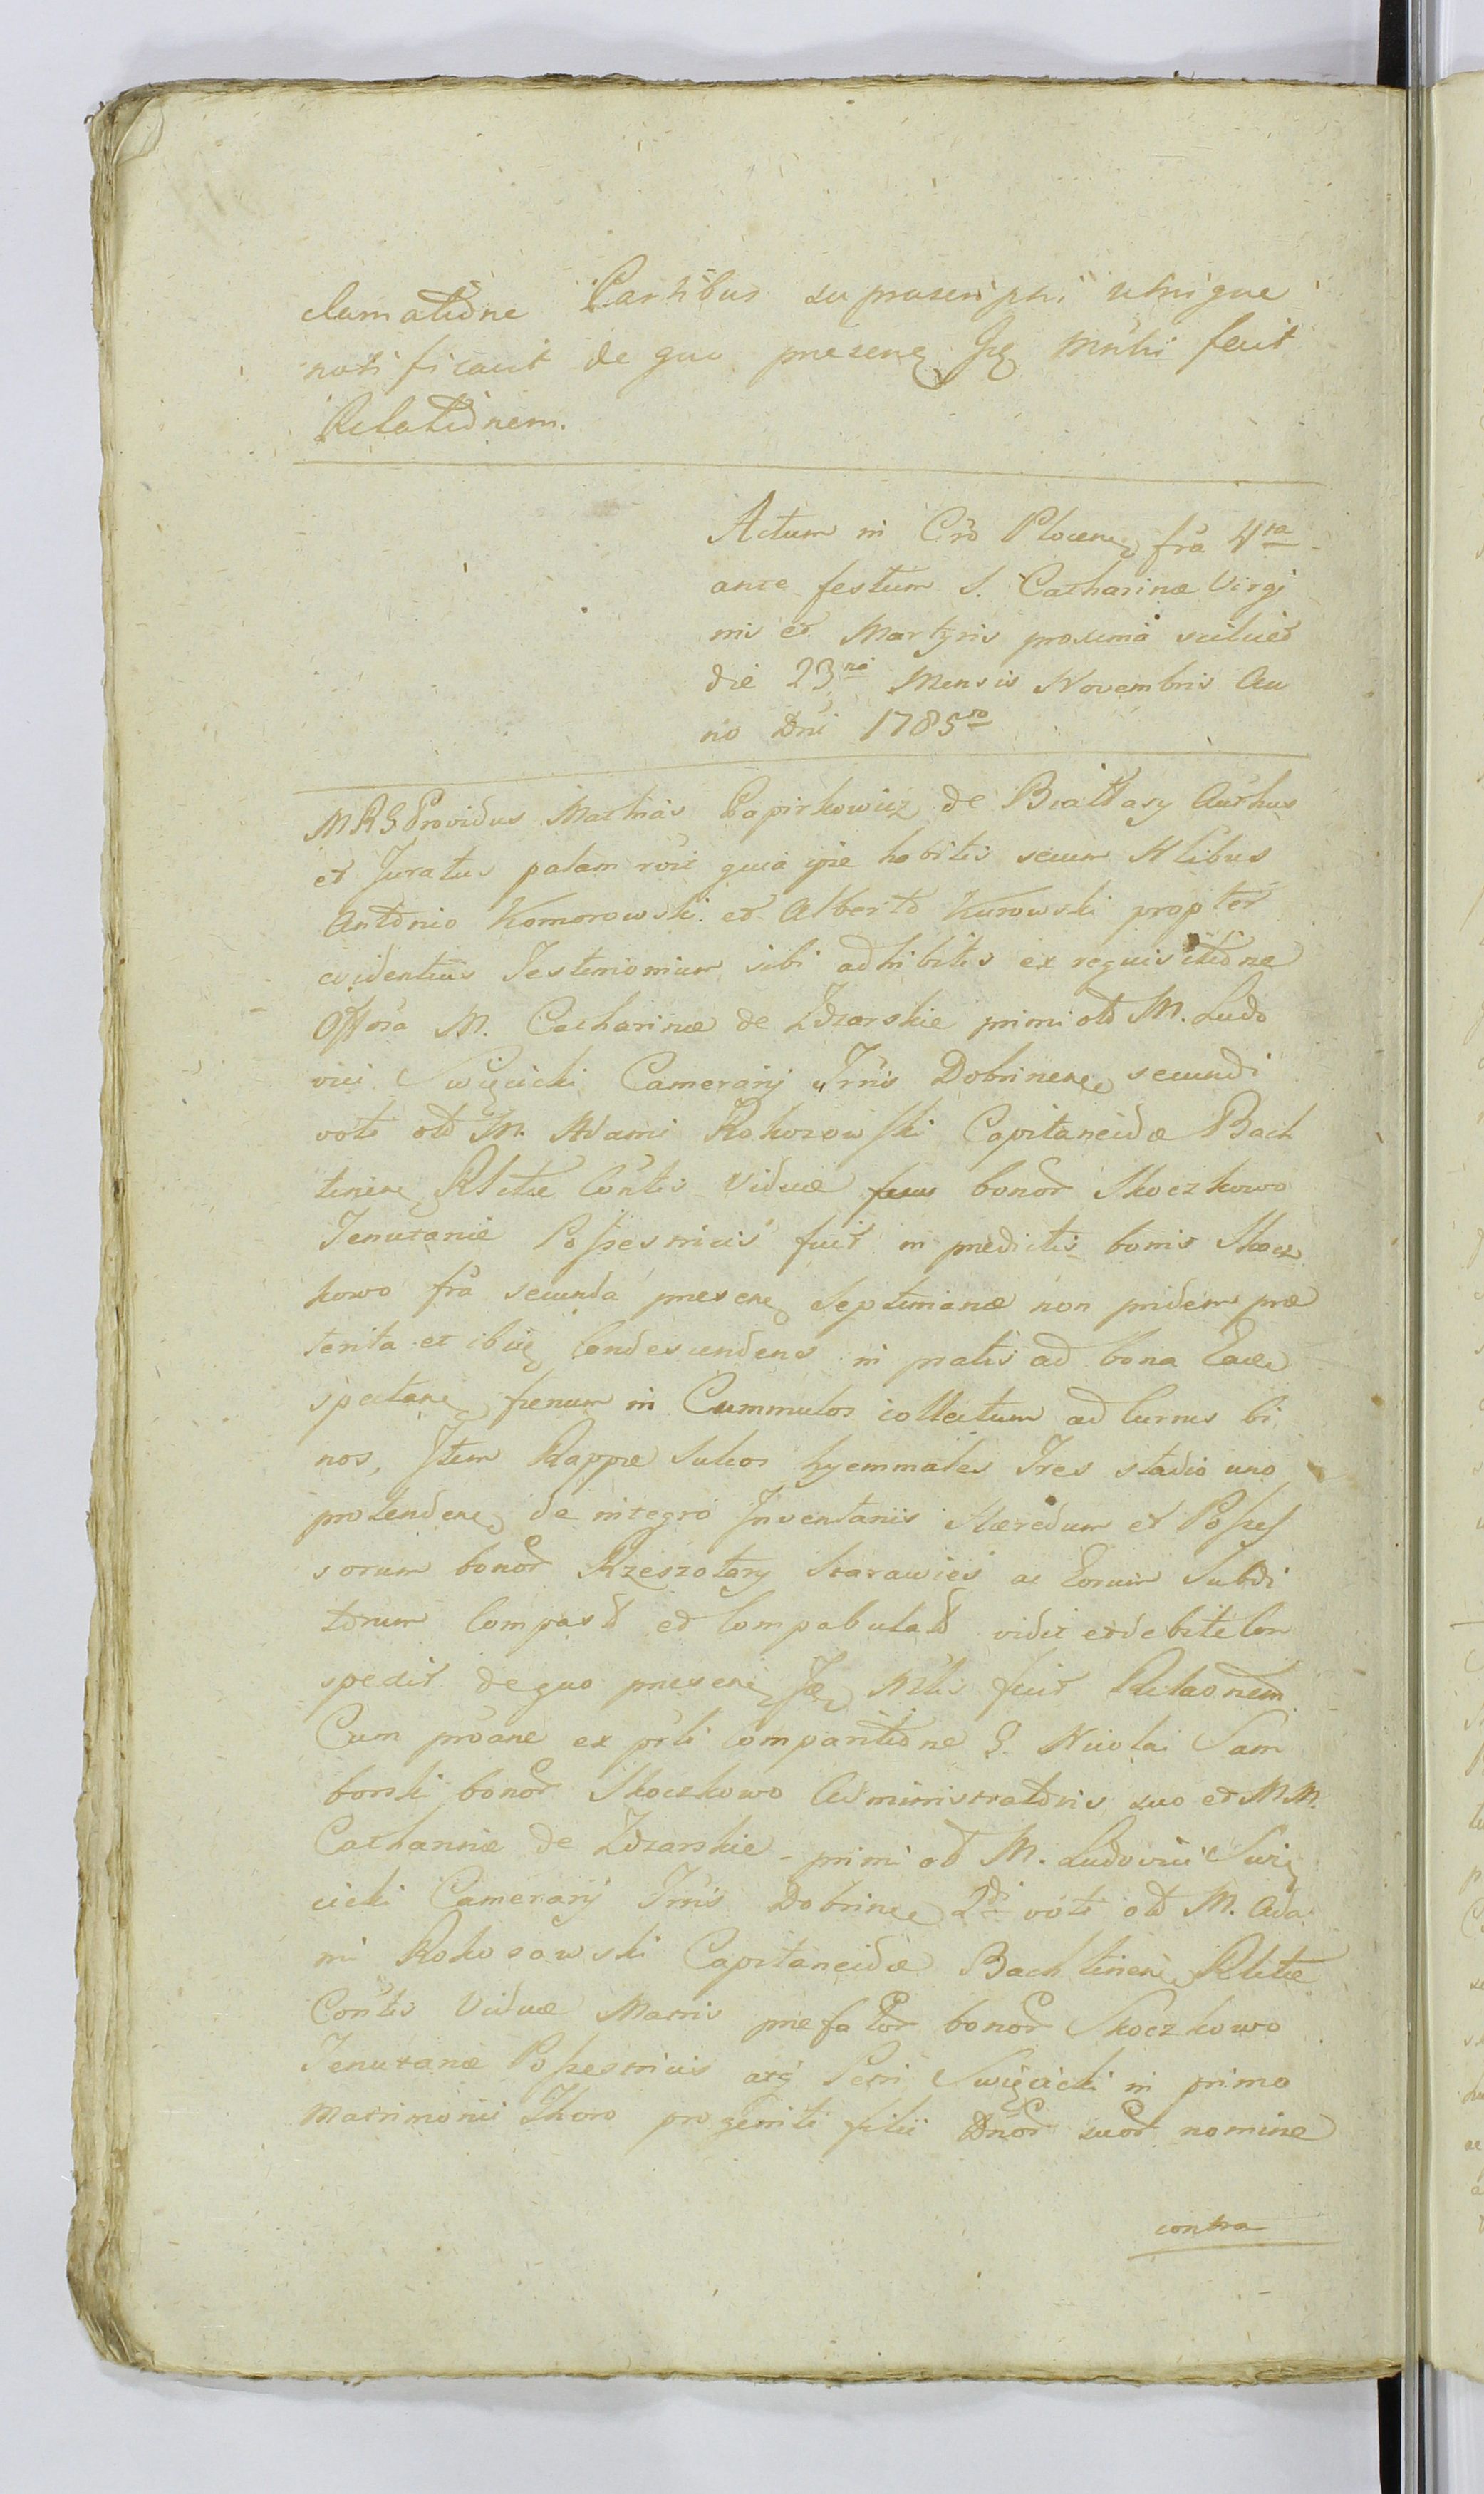 clamatione Partibus supra scriptis utrique
notificavit de quo presens Ipse Mnhi fecit
Relationem.
Actum in Cro Plocens fra 4ta
ante festum S. Catharinæ Virgi
nis et Martyris proxima scilicet
die 23na Mensis Novembris An
no Dni 1785to
MRS Providus Mathias Papirkowicz de Białłasy Authus
et Juratus palam roit quia ipse habitis secum Nlibus
Antonio Komorowski et Alberto Kurowski propter
evidentius Testimonium sibi adhibitis ex requisitione
Offosa M. Catharinæ de Zdzarskie primi olð M. Ludo
vici Swięcicki Camerarij Trris Dobrinens secundi
voti olð M. Adami Rokosowski Capitaneidæ Bach
tinens Rlictæ Contis Viduæ bonor Skoczkowo
Tenutariæ Possestricis fuit in predictis bonis Skocz
kowo fra secunda presens Septimanæ non pridem præ
terita et ibiq Condescendens in pratis ad bona Eadem
spectans fænum in Cummulos collectum ad Currus bi
nos, Item Rappæ Sulcos hyemmales Tres stadio uno
protendens de integro Inventariis Hæredum et Posses
sorum bonor Rzeszotary Starawieś ac Eorum Subdi
torum Compast et Compabulat vidit et debite Con
spexit de quo presens Ipse Mltis fecit Relaonem
Cum proane ex prti Comparitione G. Nicolai Sam
borski bonor Skoczkowo Administratoris suo et MM.
Catharinæ de Zdzarskie primi olð M. Ludovici Swię
cicki Camerarij Trris Dobrinens 2di voti olð M. Ada
mi Rokosowski Capitaneidæ Bachtinens Rlictæ
Contis Viduæ Matris præfator bonor Skoczkowo
Tenutariæ Possestricis atq Petri Swięcicki in primo
Matrimonii Thoro progeniti filii Dnor suor nomine
contra